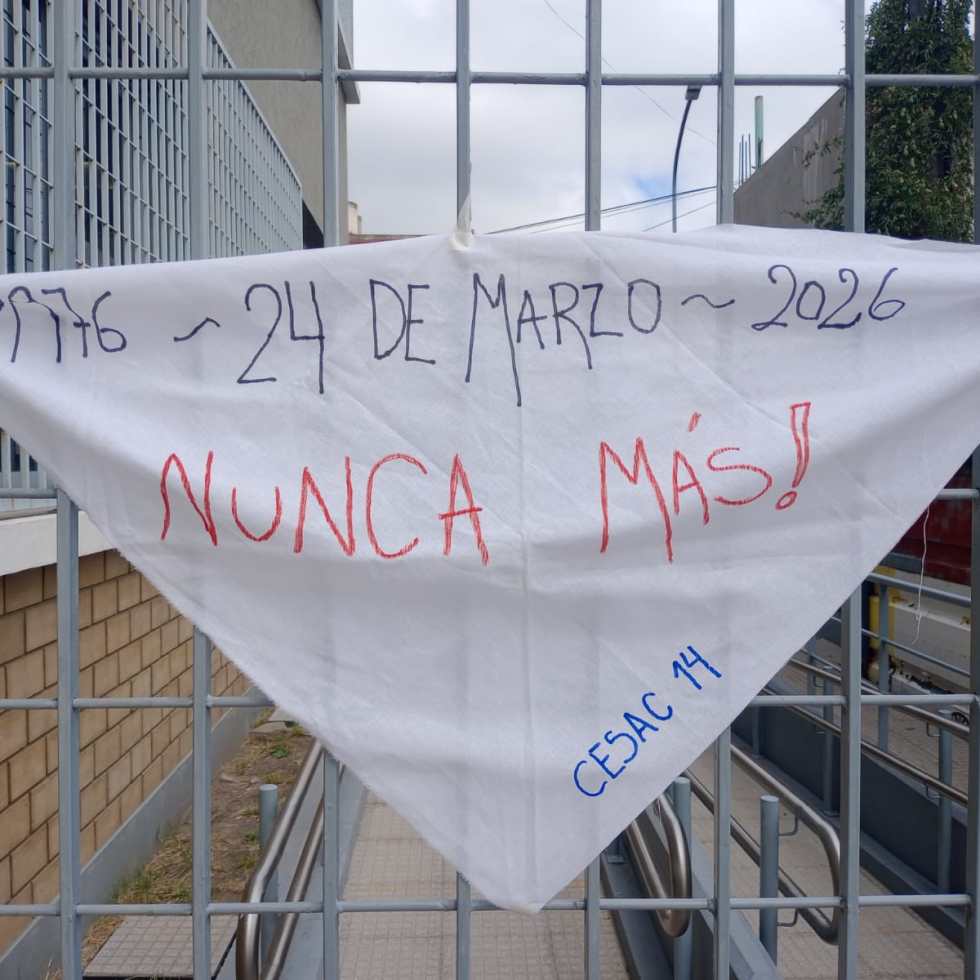 1976 ~ 24 DE MARZO ~ 2026
NUNCA MÁS!
CESAC 14